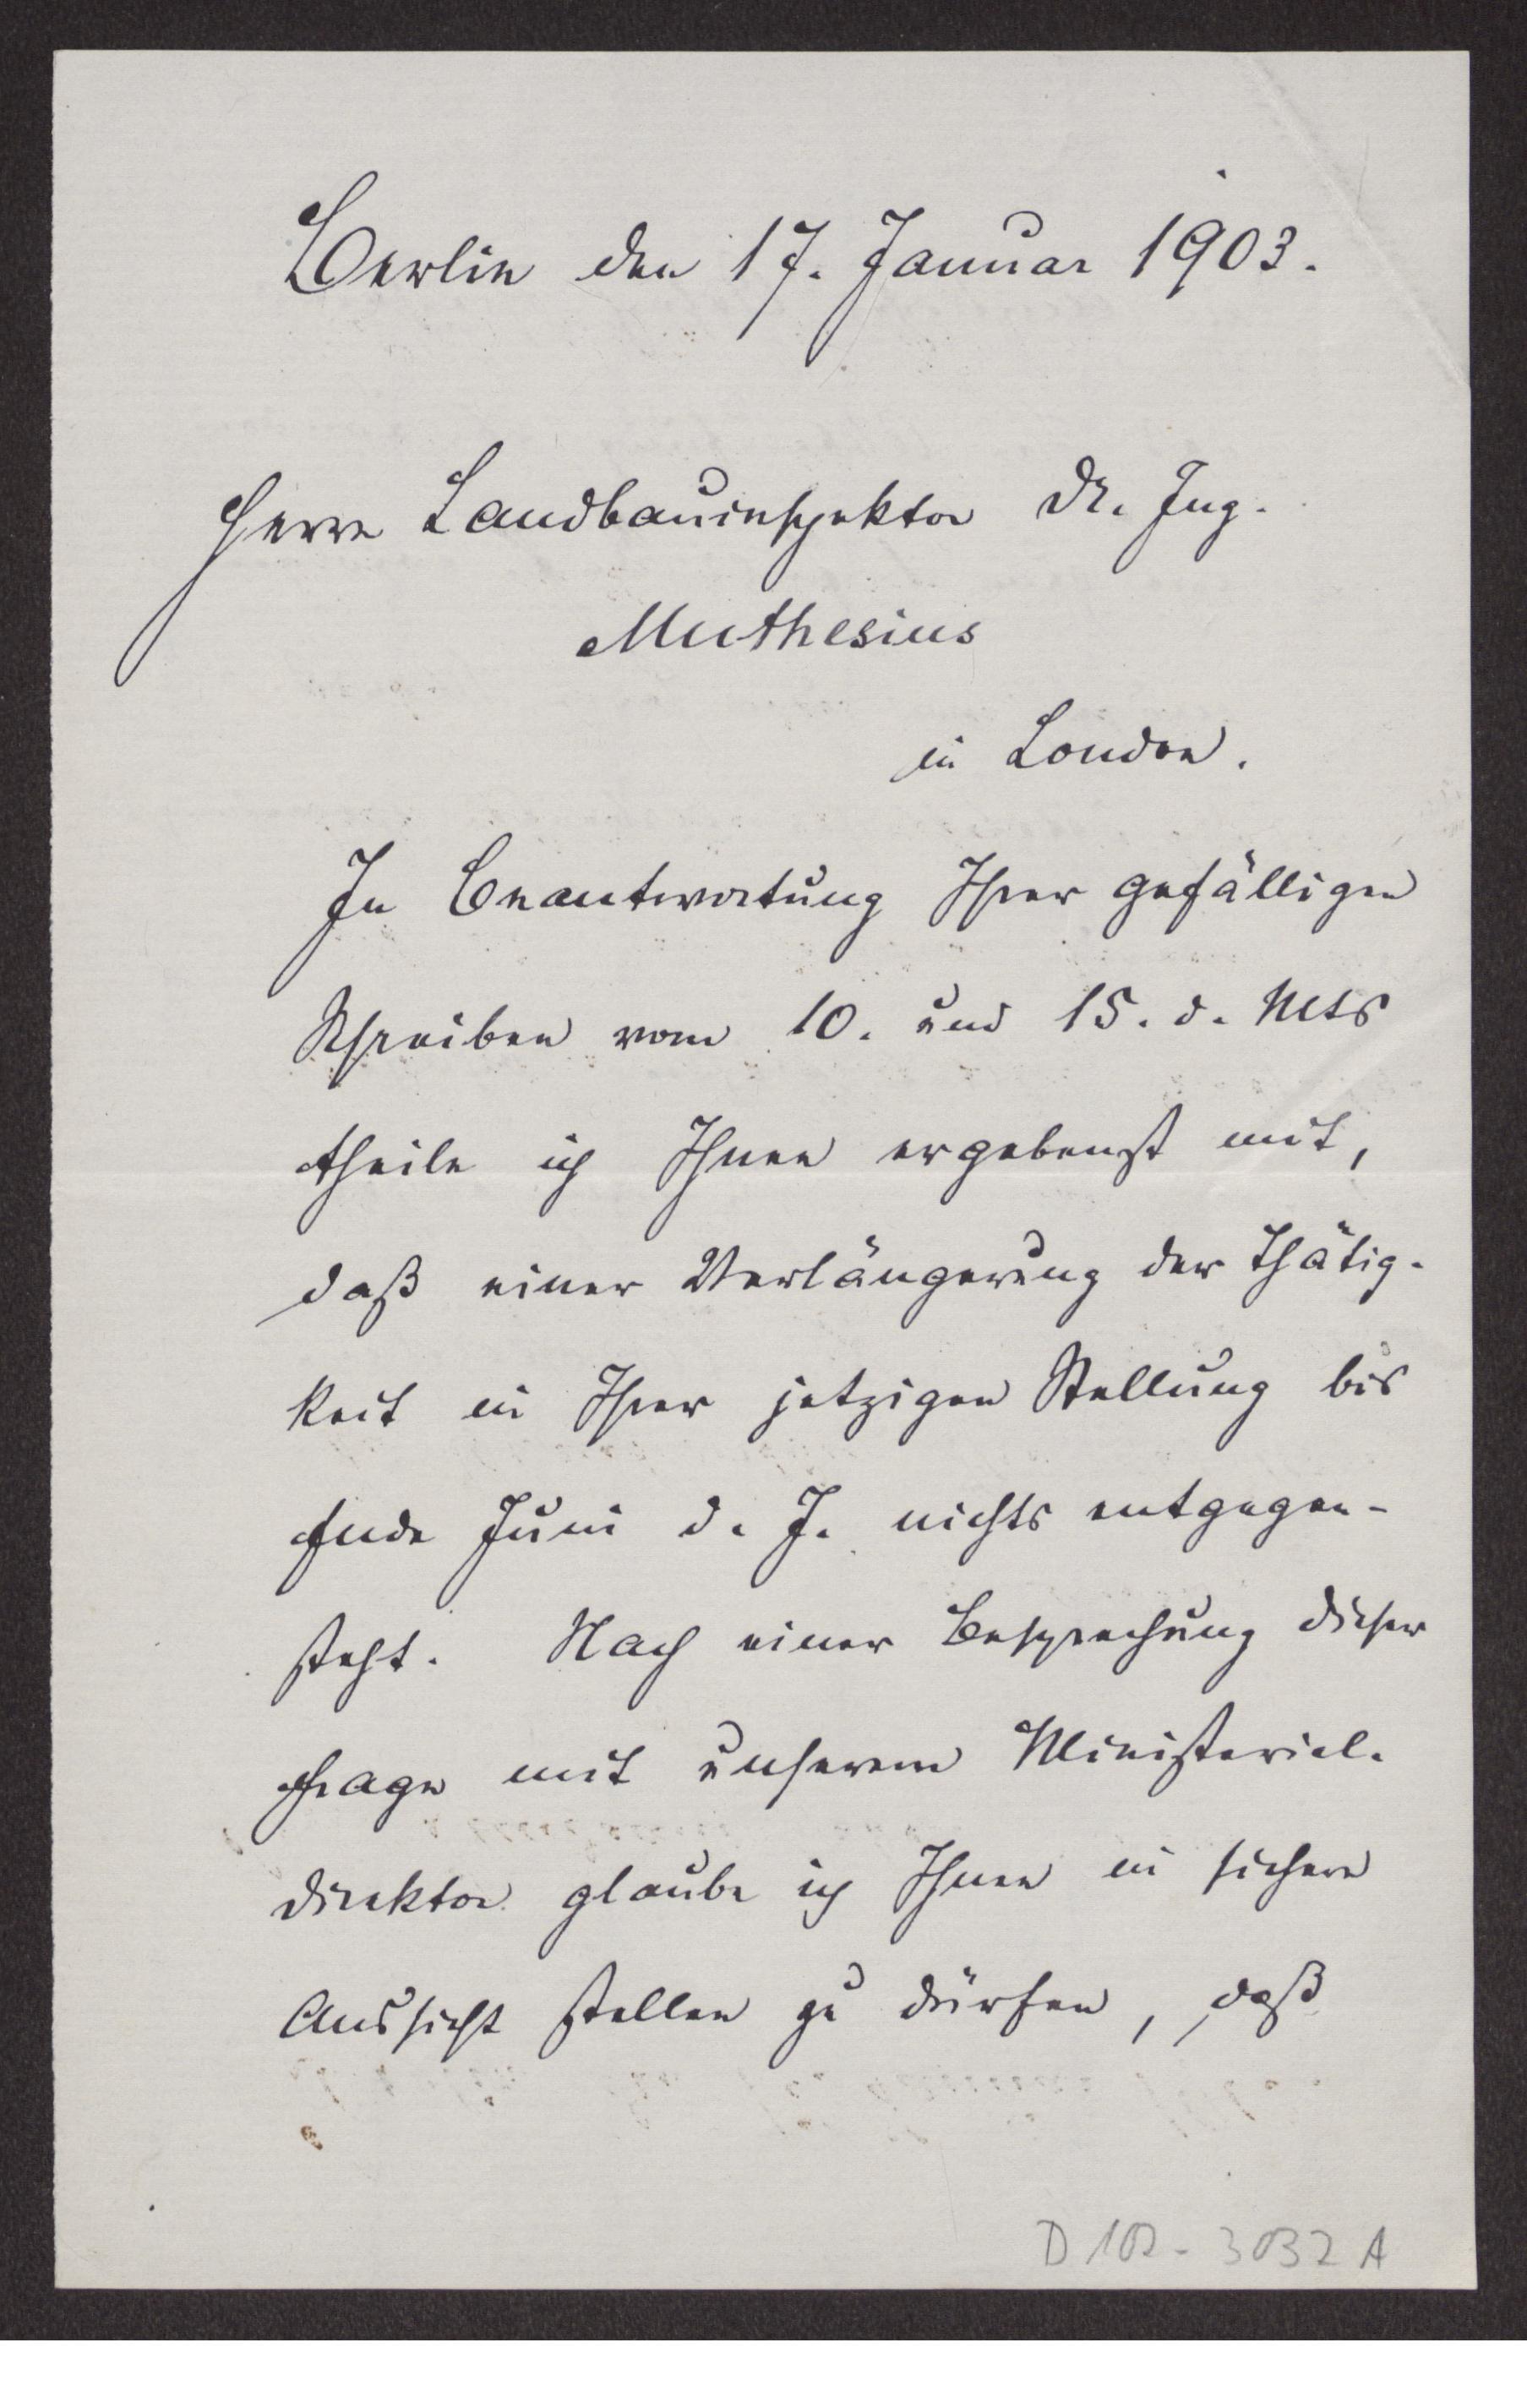 Berlin den 17. Januar 1903.
Herrn Landbauinspektor Dr. Ing.
Muthesius
in London.
In Beantwortung Ihrer gefälligen
Schreiben vom 10. und 15. d. Mts
theile ich Ihnen ergebenst mit,
daß einer Verlängerung der Thätig-
keit in Ihrer jetzigen Stellung bis
Ende Juni d. J. nichts entgegen-
steht. Nach einer Besprechung dieser
Frage mit unserem Ministerial-
direktor glaube ich Ihnen in sichere
Aussicht stellen zu dürfen, daß
D 102-3032 A